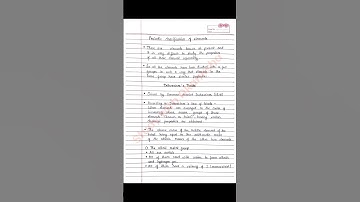 Periodic Classification of elements
There are elements known at present and
it is very difficult to study the properties
of all these elements separately.
So all the elements have been divided into a few
groups in such a way that elements in the
same group have similar properties.
Dobereiner's Triads
Given by German chemist
According to Dobereiner's law of triads -
When elements are arranged in the order of
increasing atomic masses, groups of three
elements (known as triads), having similar
chemical properties are obtained.
The atomic mass of the middle element of the
triad being equal to the arithmetic mean
of the atomic masses of the other two elements.
All are metals
All of them react with water to form alkali
and hydrogen gas.
All of them have a valency of 1 (monovalent)